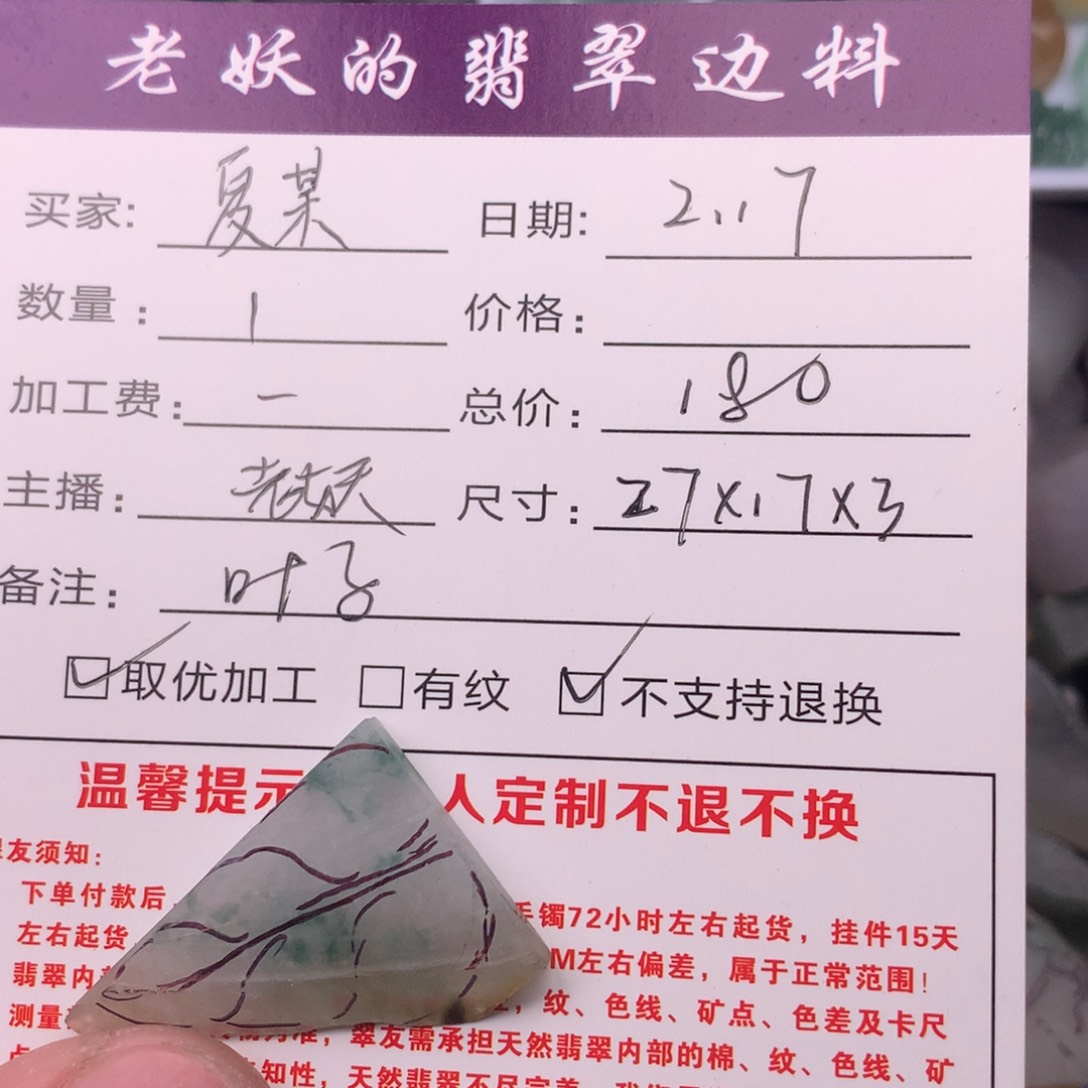 老妖的翡翠边料
买家: 夏某 日期: 2.17
数量: 1 价格:
加工费: 一 总价: 180
主播: 老妖 尺寸: 27x17x3
备注: 叶子
取优加工 有纹 不支持退换
温馨提示 人定制不退不换
友须知:
下单付款后 手镯72小时左右起货，挂件15天
左右起货 M左右偏差，属于正常范围！
翡翠内 纹、色线、矿点、色差及卡尺
测量 翠友需承担天然翡翠内部的棉、纹、色线、矿
点 知性，天然翡翠不尽完美